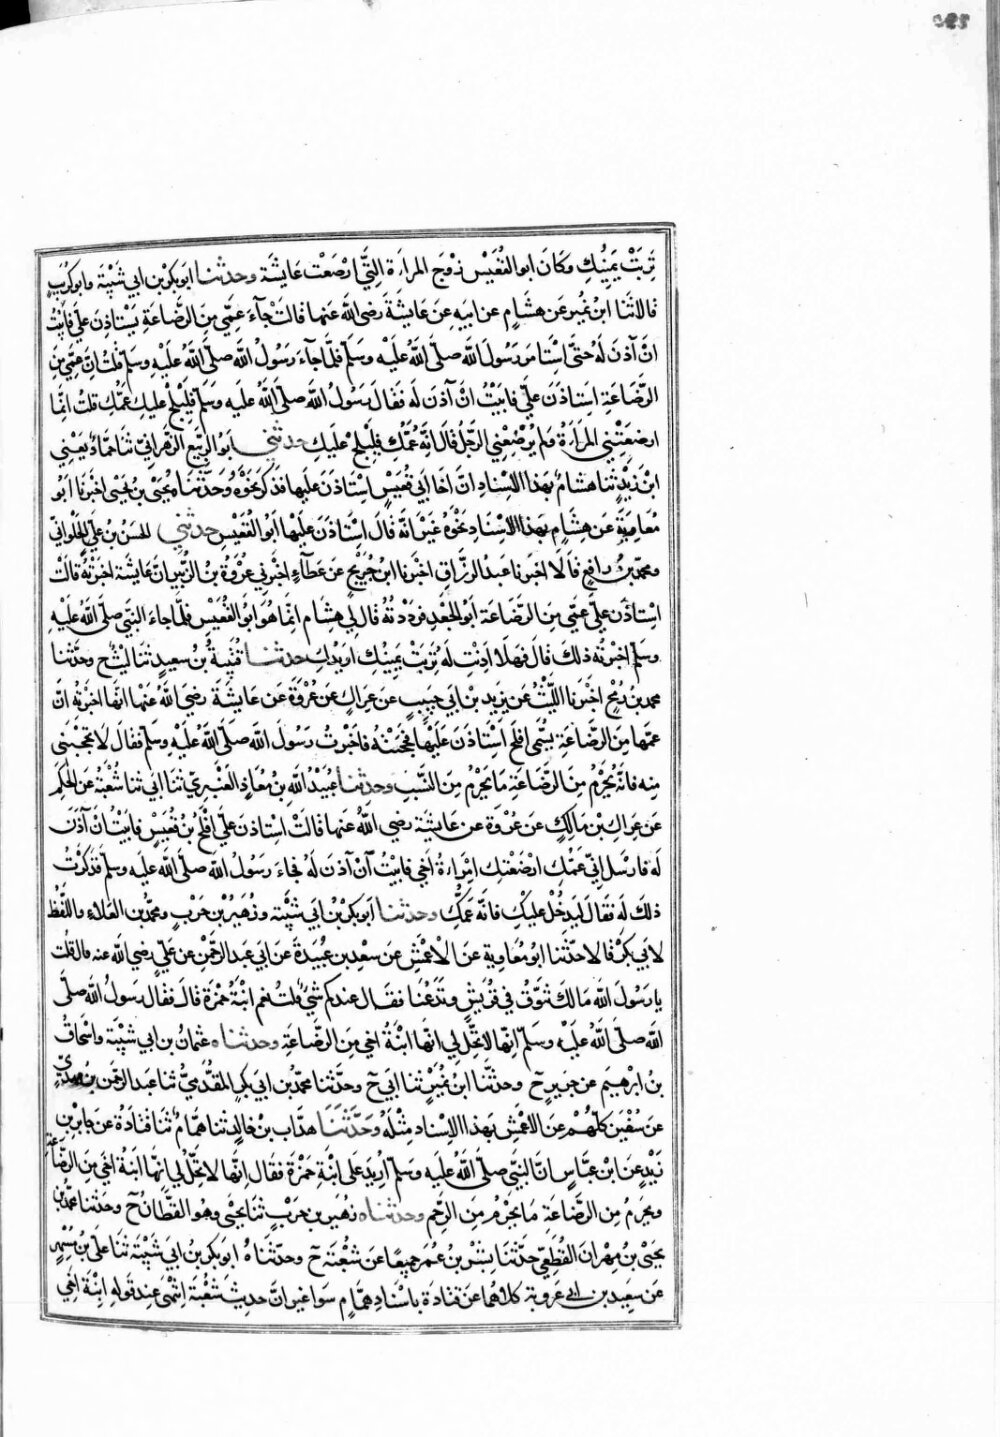 تربت يمينك وكان ابو القعيس زوج المراءة التي ارضعت عايشة وحدثنا ابو بكر بن ابي شيبة وابو كريب
قالا ثنا ابن نمير عن هشام عن ابيه عن عايشة رضى الله عنها قالت جآء عمي من الرضاعة يستاذن علي فابيت
ان آذن له حتى استامر رسول الله صلى الله عليه وسلم فلما جآء رسول الله صلى الله عليه وسلم قلت ان عمي من
الرضاعة استاذن علي فابيت ان آذن له فقال رسول الله صلى الله عليه وسلم فليلج عليك عمك قلت انما
ارضعتني المراءة ولم يرضعني الرجل قال انه عمك فليلج عليك حدثني ابو الربيع الزهراني ثنا حماد يعني
ابن زيد ثنا هشام بهذا الاسناد ان اخا ابي قعيس استاذن عليها فذكر نحوه وحدثنا يحيى بن يحيى اخبرنا ابو
معاوية عن هشام بهذا الاسناد نحوه غير انه قال استاذن عليها ابو القعيس حدثني الحسن بن علي الحلواني
ومحمد بن رافع قالا اخبرنا عبد الرزاق اخبرنا ابن جريج عن عطآء اخبرني عروة بن الزبير ان عايشة اخبرته قالت
استاذن علي عمي من الرضاعة ابو الجعد فرددته قال لي هشام انما هو ابو القعيس فلما جاء النبي صلى الله عليه
وسلم اخبرته ذلك قال فهلا اذنت له تربت يمينك او يدك حدثنا قتيبة بن سعيد ثنا ليث ح وحدثنا
محمد بن رمح اخبرنا الليث عن يزيد بن ابي حبيب عن عراك عن عروة عن عايشة رضي الله عنها انها اخبرته ان
عمها من الرضاعة يسمى افلح استاذن عليها فحجبته فاخبرت رسول الله صلى الله عليه وسلم فقال لا تحتجبي
منه فانه يحرم من الرضاعة ما يحرم من النسب وحدثنا عبيد الله بن معاذ العنبري ثنا ابي ثنا شعبة عن الحكم
عن عراك بن مالك عن عروة عن عايشة رضي الله عنها قالت استاذن علي افلح بن قعيس فابيت ان آذن
له فارسل اني عمك ارضعتك امراءة اخي فابيت آن آذن له فجاء رسول الله صلى الله عليه وسلم فذكرت
ذلك له فقال ليدخل عليك فانه عمك وحدثنا ابو بكر بن ابي شيبة وزهير بن حرب ومحمد بن العلاء واللفظ
لابي بكر قالا حدثنا ابو معاوية عن الاعمش عن سعد بن عبيدة عن ابي عبد الرحمن عن علي رضي الله عنه قال قلت
يا رسول الله ما لك تنوق في قريش وتدعنا فقال عندكم شي قلت نعم ابنة حمزة قال فقال رسول الله صلى
الله صلى الله عليه وسلم انها لا تحل لي انها ابنة اخي من الرضاعة وحدثناه عثمان بن ابي شيبة واسحاق
بن ابرهيم عن جرير ح وحدثنا ابن نمير ثنا ابي ح وحدثنا محمد بن ابي بكر المقدمي ثنا عبد الرحمن بن مهدي
عن سفين كلهم عن الاعمش بهذا الاسناد مثله وحدثنا هداب بن خالد ثنا همام ثنا قتادة عن جابر بن
زيد عن ابن عباس ان النبي صلى الله عليه وسلم اريد على ابنة حمزة فقال انها لا تحل لي انها ابنة اخي من الرضاعة
ويحرم من الرضاعة ما يحرم من الرحم وحدثناه زهير بن حرب ثنا يحيى وهو القطان ح وحدثنا محمد بن
يحيى بن مهران القطعي حدثنا بشر بن عمر جميعا عن شعبة ح وحدثناه ابو بكر بن ابي شيبة ثنا علي بن مسهر
عن سعيد بن ابي عروبة كلاهما عن قتادة باسناد همام سوا غير ان حديث شعبة انتهى عند قوله ابنة اخي